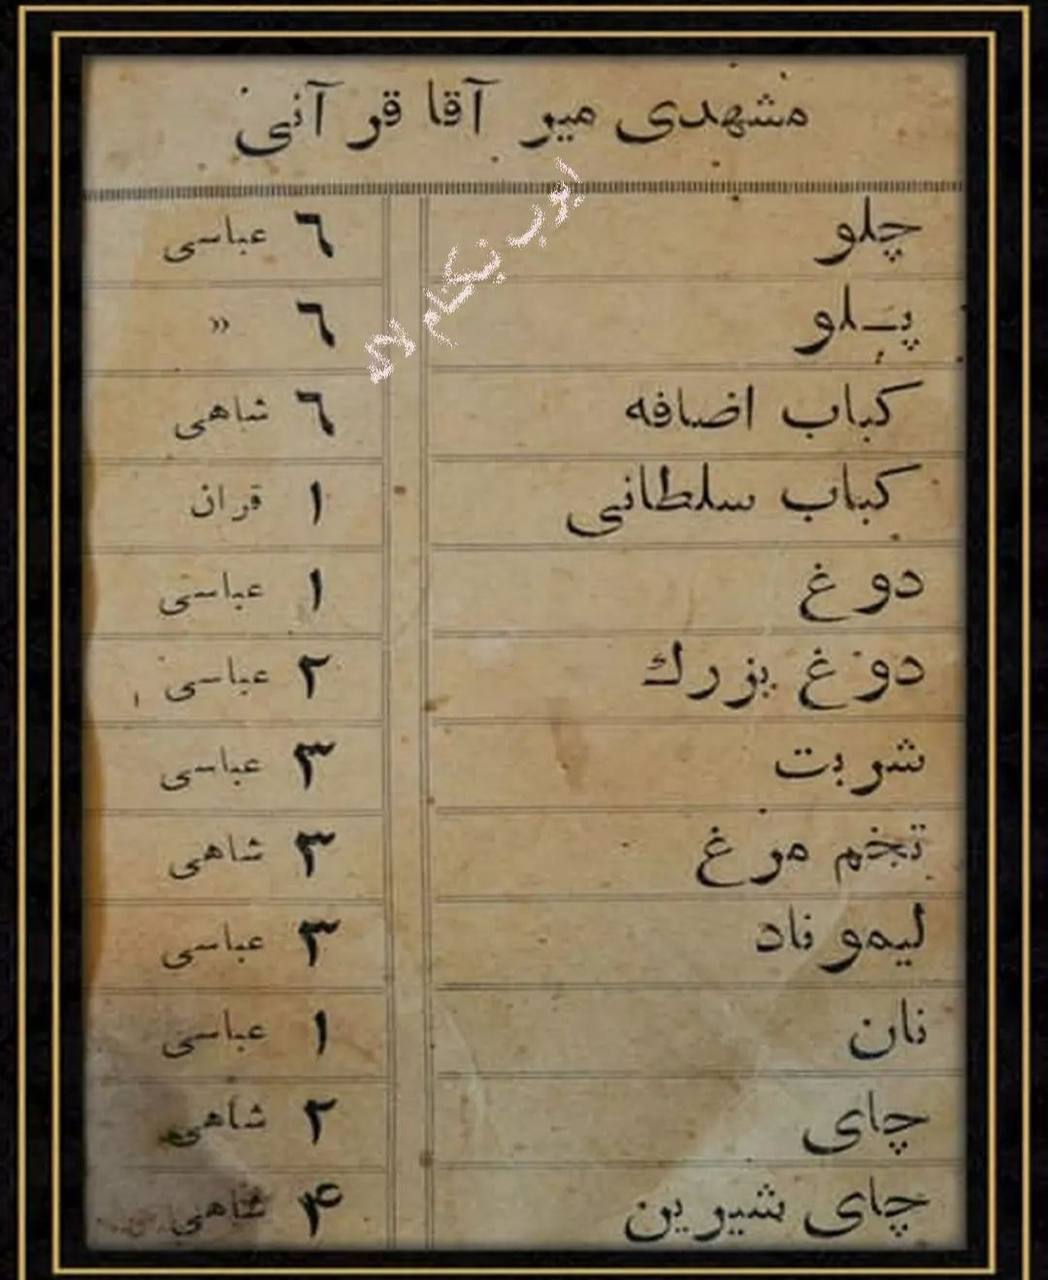 مشهدی میر آقا قرآنی
چلو ٦ عباسی
پلو ٦ »
کباب اضافه ٦ شاهی
کباب سلطانی ١ قران
دوغ ١ عباسی
دوغ بزرك ٢ عباسی
شربت ٣ عباسی
تخم مرغ ٣ شاهی
لیموناد ٣ عباسی
نان ١ عباسی
چای ٢ شاهی
چای شیرین ۴ شاهی